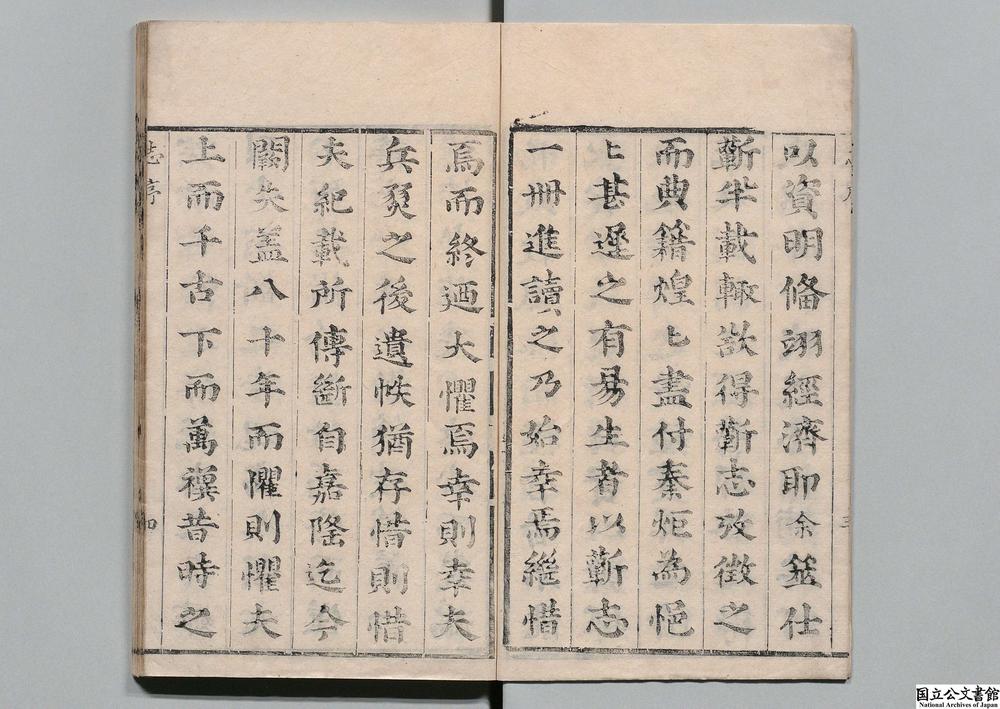 以資明備翊經濟耶余筮仕
蘄半載輙欲得蘄志攷徵之
而典籍煌匕盡付秦炬為悒
匕甚遲之有易生者以蘄志
一冊進讀之乃始幸焉繼惜
焉而終迺大懼焉幸則幸夫
兵燹之後遺帙猶存惜則惜
夫紀載所傳斷自嘉隆迄今
闕矣盖八十年而懼則懼夫
上而千古下而萬禩昔時之
志序
四
国立公文書館
National Archives of Japan